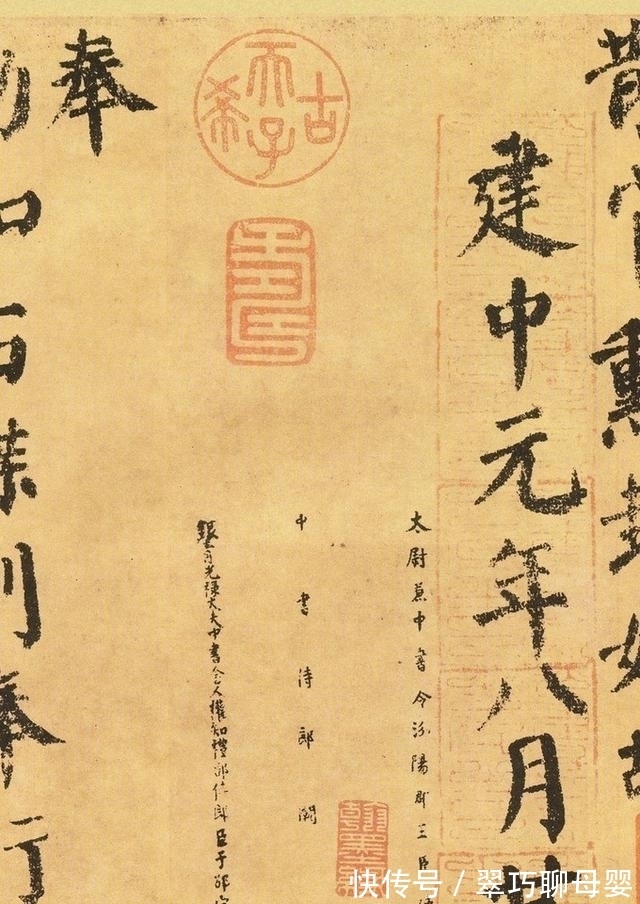 散官勳封如故
建中元年八月
太尉兼中書令汾陽郡王臣
中書侍郎闕
銀青光祿大夫中書舍人權知禮部侍郎臣于邵
古希天子
壽
奉
勑如右牒到奉行
快传号 / 翠巧聊母婴